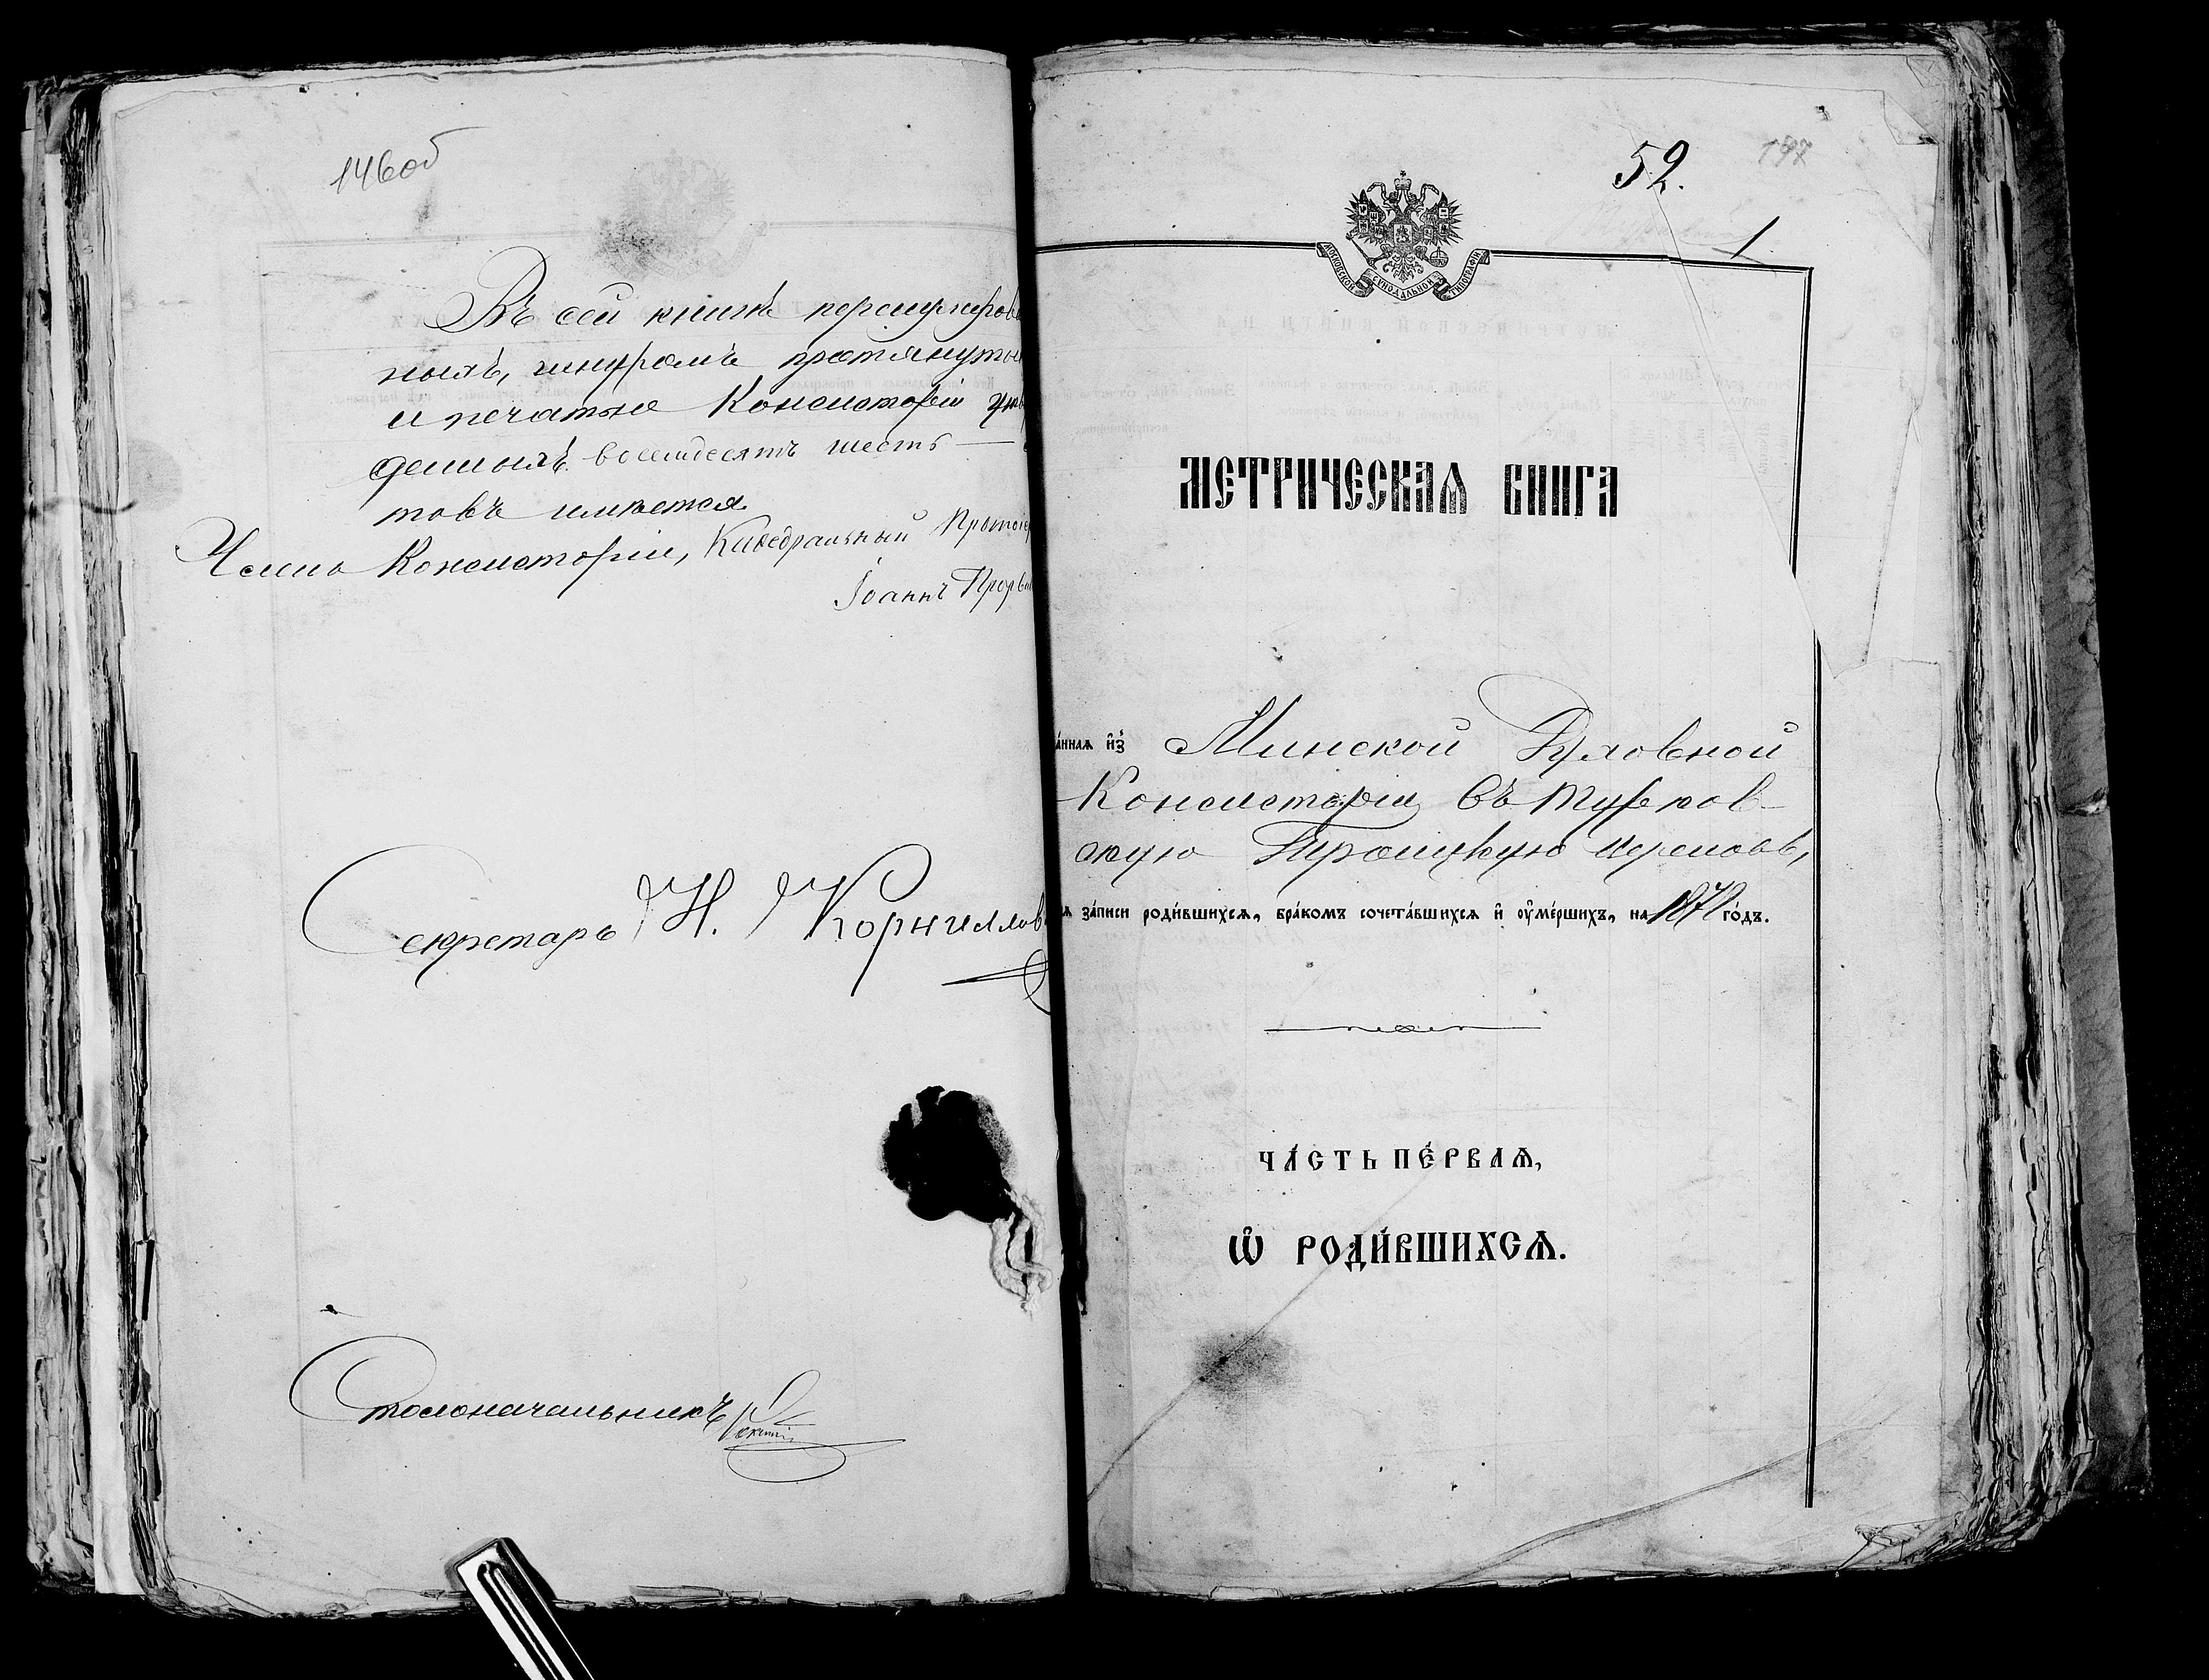 146об
Въ сей книгѣ перенумерова
ныхъ, шнуромъ протянутых
и печатью Консисторіи утв
денныхъ восемдесятъ шесть —
товъ имѣется.
Членъ Консисторіи, Каѳедральный Протоіер
Іоаннъ
Секретарь Н. Корнилов
Столоначальникъ
52.
147
1
МОСКОВСКОЙ СѴНОДАЛЬНОЙ ТИПОГРАФІИ
МЕТРИЧЕСКАѦ КНИГА
а́ннаѧ и҆з̾ Минской Духовной
Консисторіи въ Туров-
скую Троицкую церковь,
ѧ за́писи роди́вшихсѧ, бра́комъ сочета́вшихсѧ и҆ ᲂу҆ме́ршихъ, на го́дъ.
ЧА́СТЬ ПЕ́РВАѦ,
Ѡ҆ РОДИ́ВШИХСѦ.